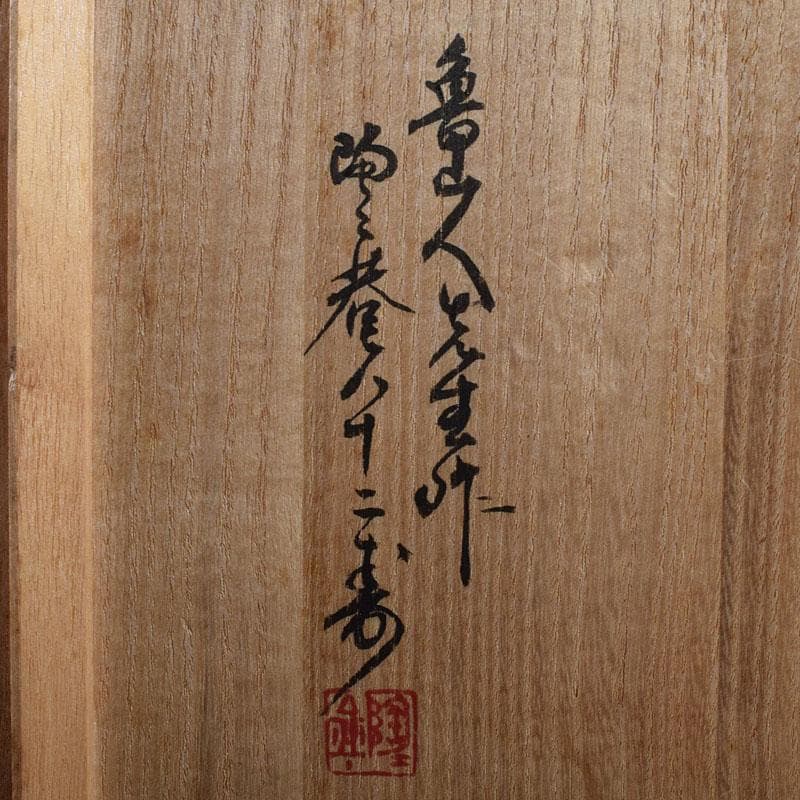 魯山人先生作
陶々菴八十二寿